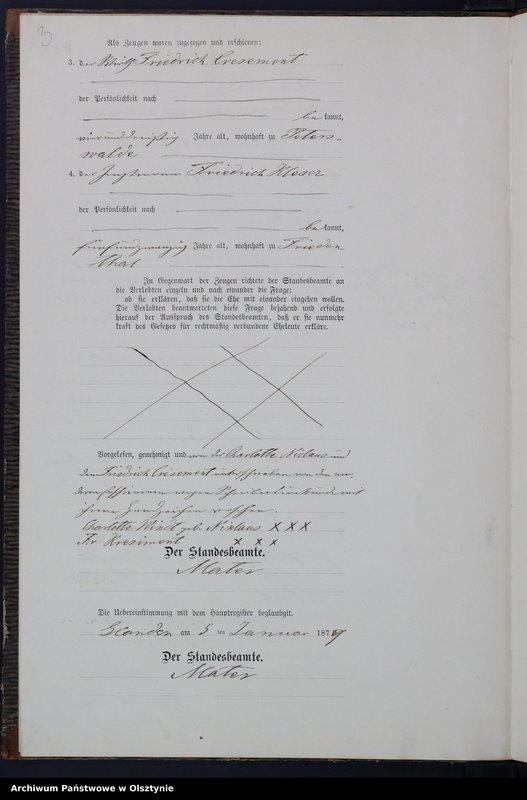 3
Als Zeugen waren zugezogen und erschienen:
3. der Friedrich Cresemont
der Persönlichkeit nach
bekannt,
vierunddreißig Jahre alt, wohnhaft zu Peters-
walde
4. der Friedrich Kloser
der Persönlichkeit nach
bekannt,
fünfundzwanzig Jahre alt, wohnhaft zu Frieden
thal
In Gegenwart der Zeugen richtete der Standesbeamte an
die Verlobten einzeln und nach einander die Frage:
ob sie erklären, daß sie die Ehe mit einander eingehen wollen.
Die Verlobten beantworteten diese Frage bejahend und erfolgte
hierauf der Ausspruch des Standesbeamten, daß er sie nunmehr
kraft des Gesetzes für rechtmäßig verbundene Eheleute erkläre.
Vorgelesen, genehmigt und von der Charlotte Niclaus und
dem Friedrich Crisement unterschrieben von den an-
deren wegen Schreibensunkunde mit
ihrem Handzeichen versehen.
Charlotte Windt geb. Niklaus x x x
Fr Kresimont x x x
Der Standesbeamte.
Mater
Die Uebereinstimmung mit dem Hauptregister beglaubigt.
Glanden am 5 ten Januar 1879
Der Standesbeamte.
Mater
Archiwum Państwowe w Olsztynie